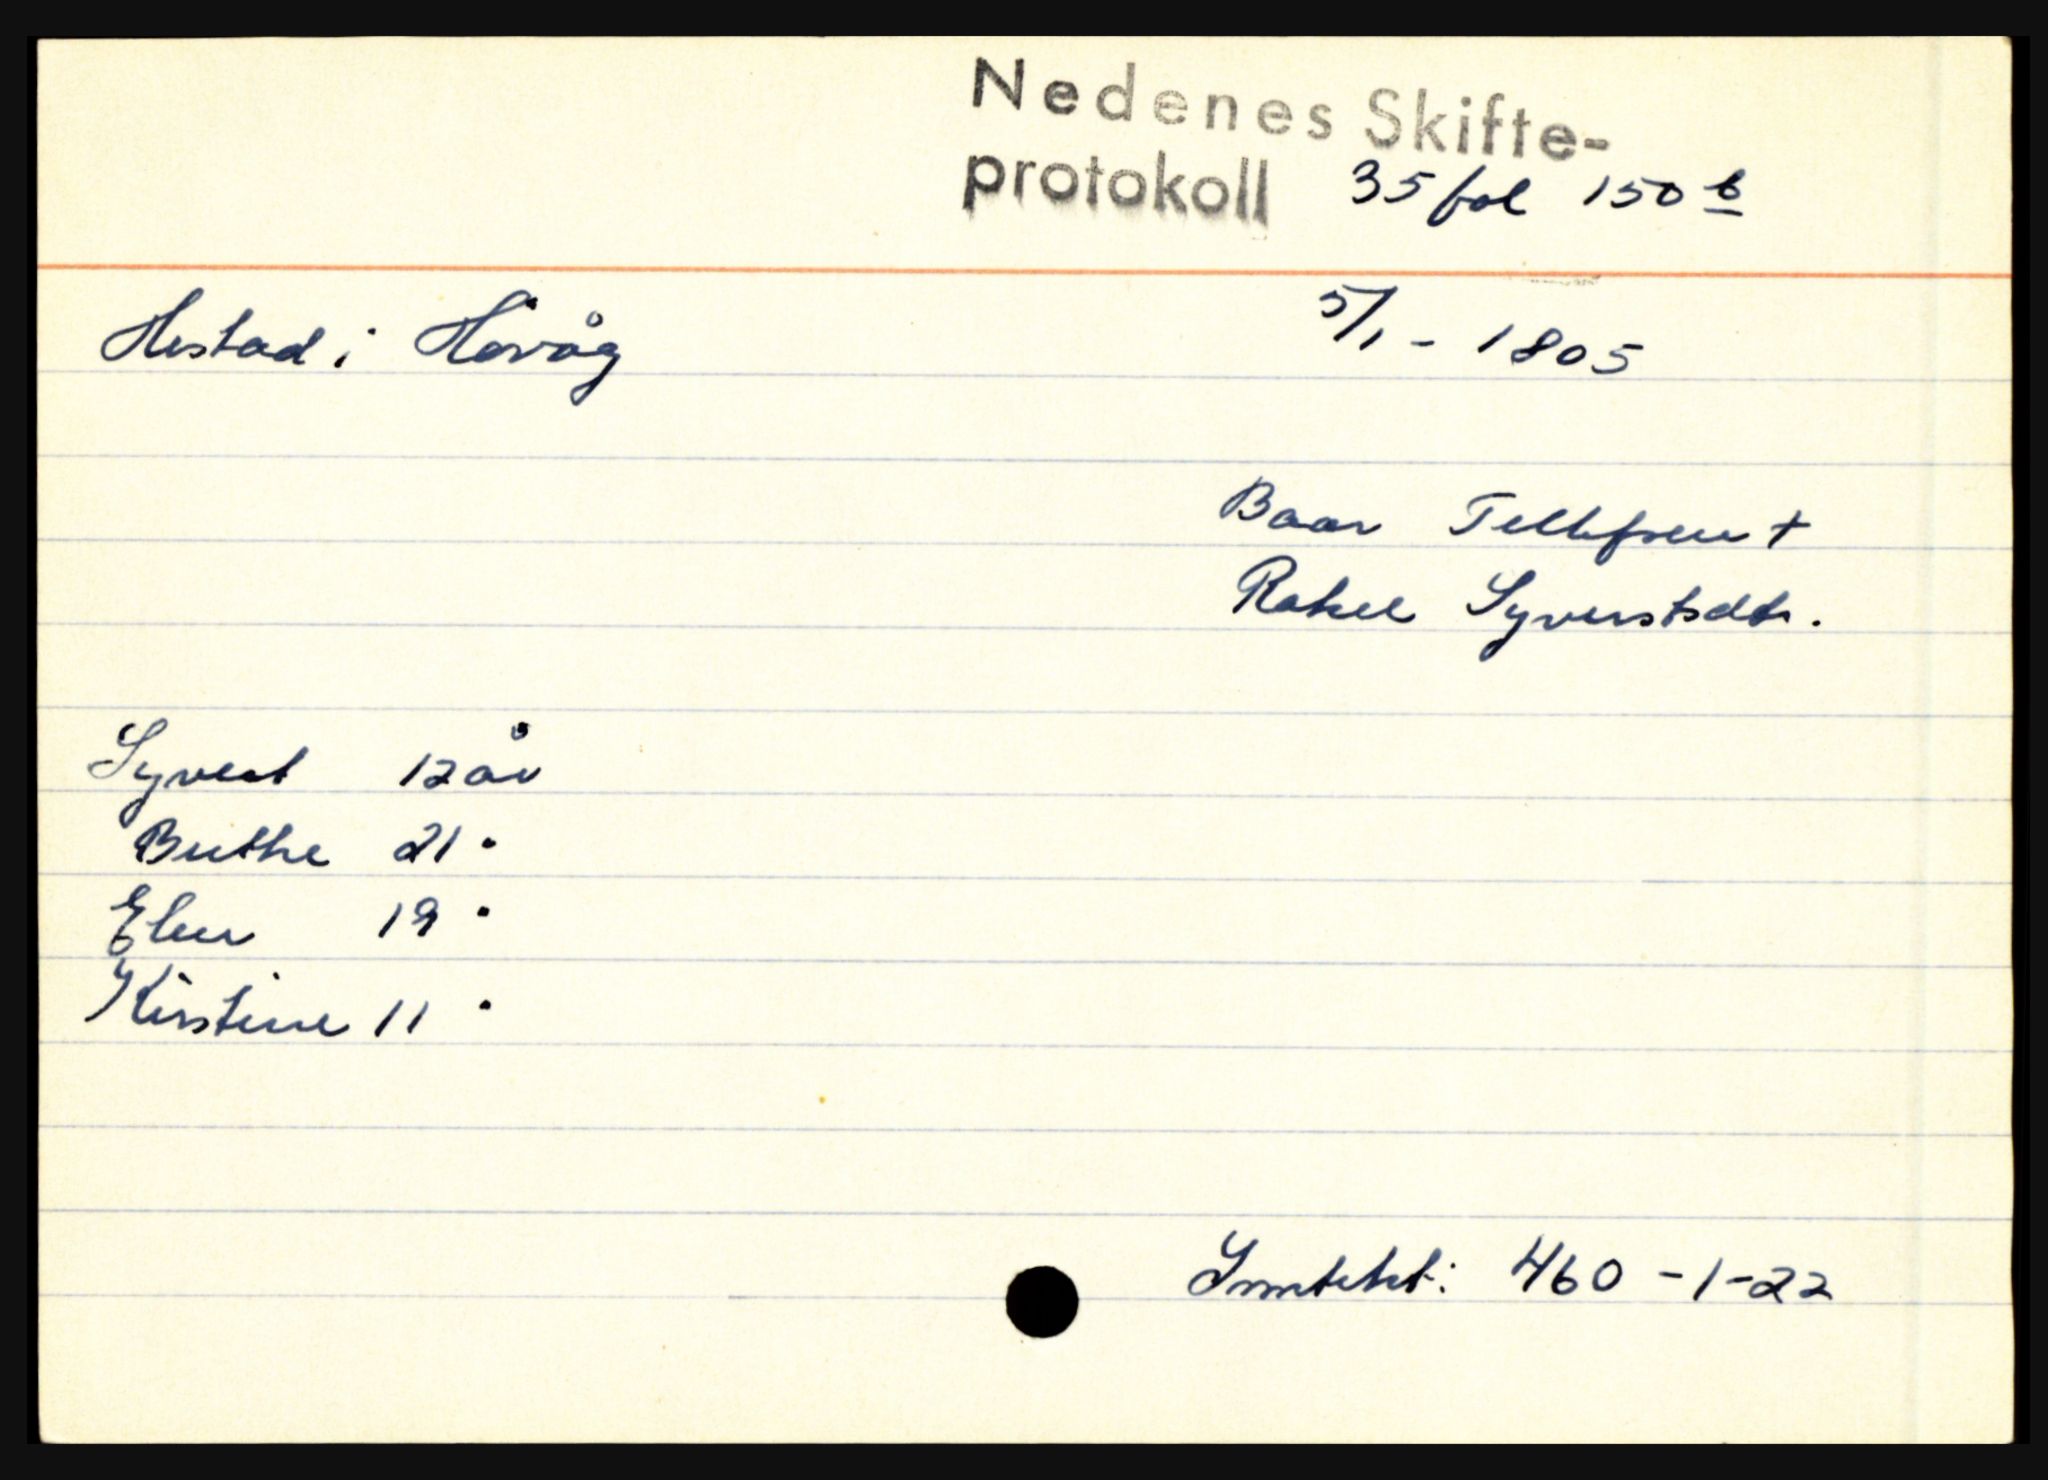 Nedenes Skifte-
protokoll 35 fol 150 b
Hestad i Høvåg 5/1 - 1805
Baar Tellefsen +
Rakel Syvertsdtr.
Syvert 12 år
Berthe 21 "
Elen 19 "
Kirstine 11 "
Inntekt: 460 - 1 - 22